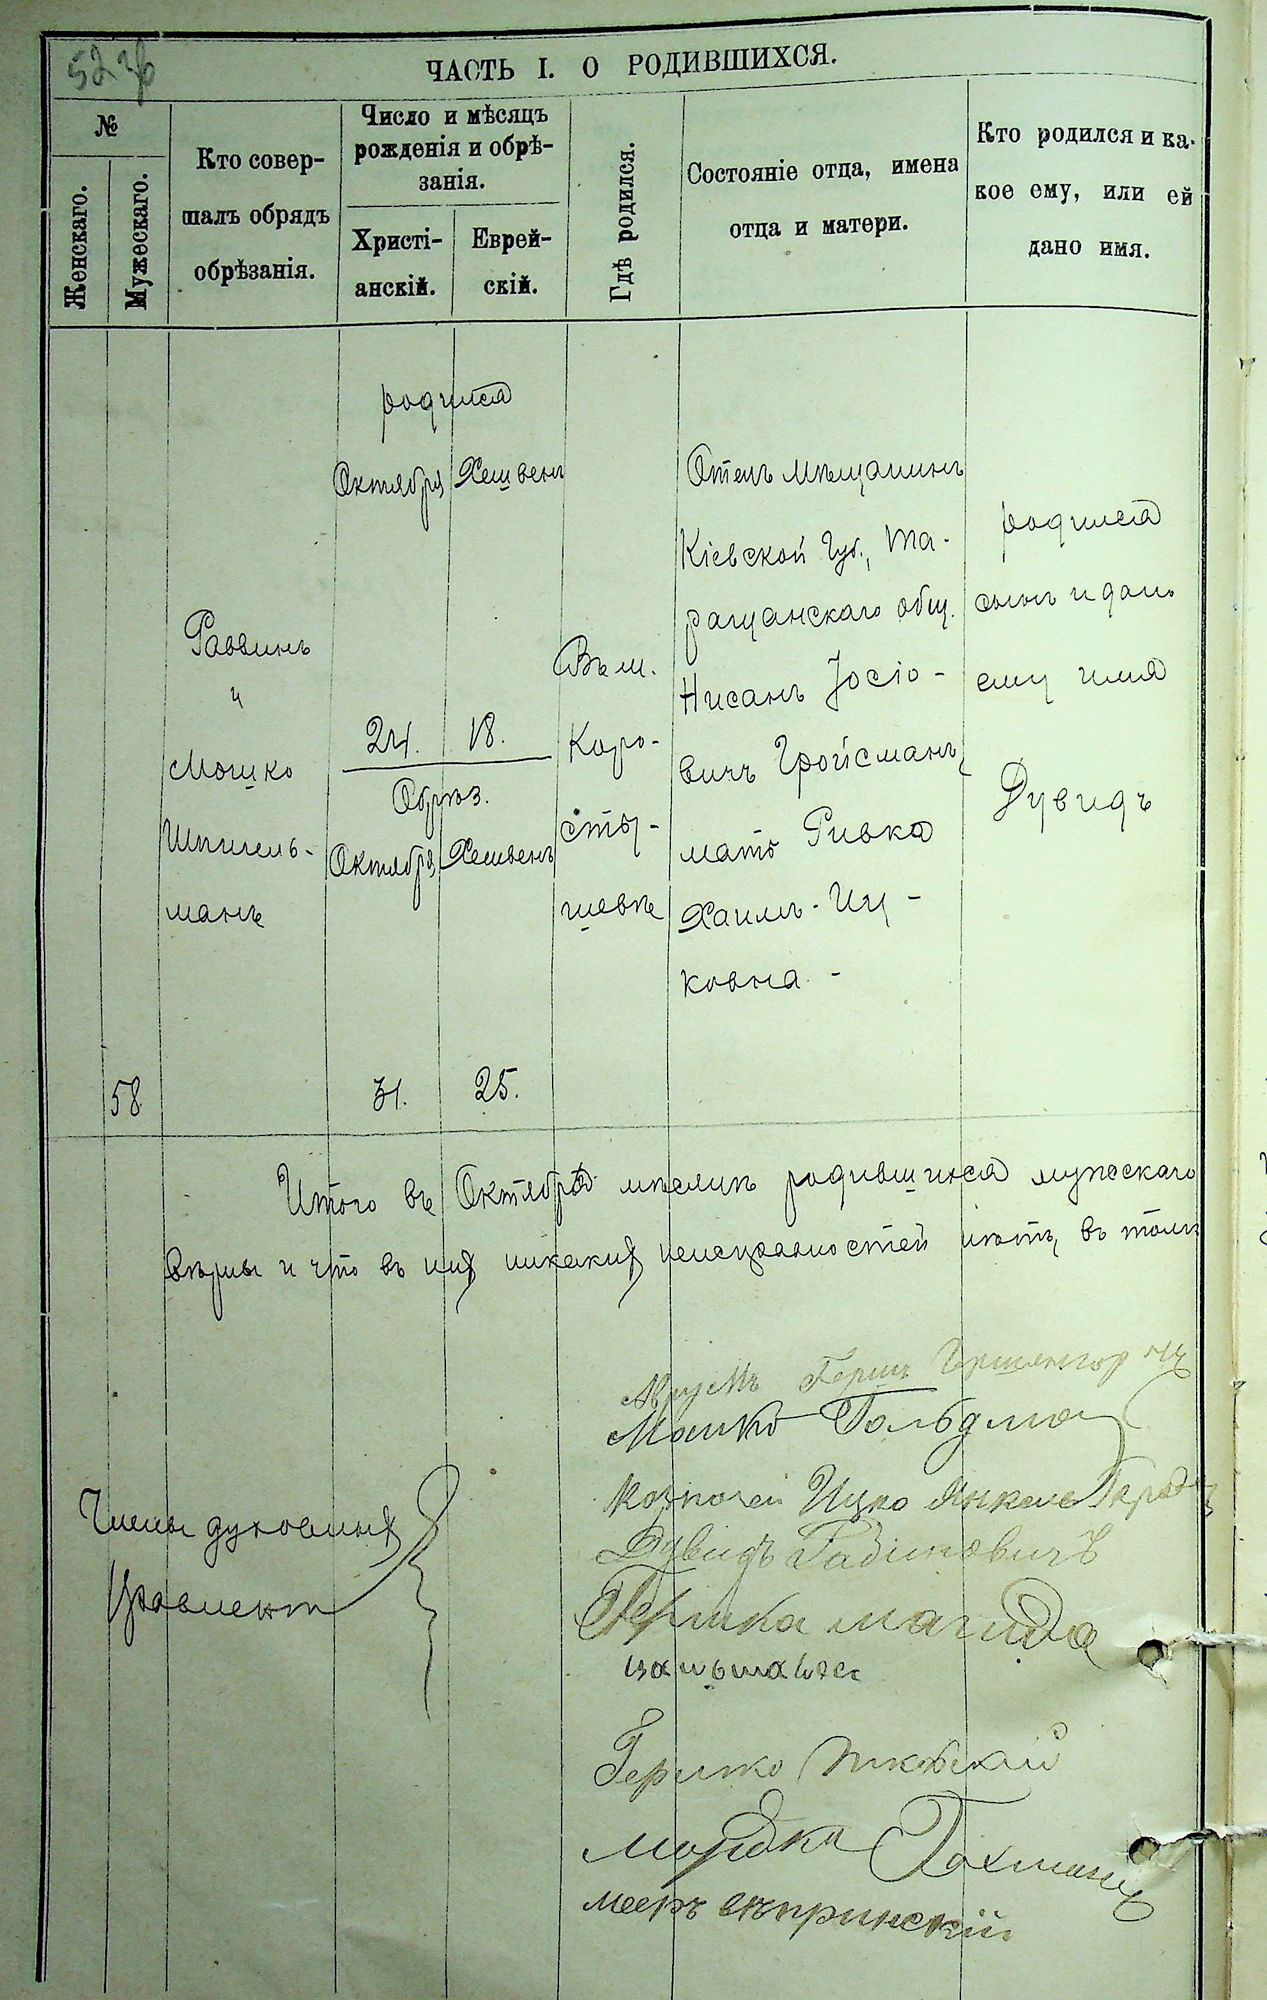 52 об
ЧАСТЬ I. О РОДИВШИХСЯ.
№
Женскаго.
Мужескаго.
Кто совер-
шалъ обрядъ
обрѣзанія.
Число и мѣсяцъ
рожденія и обрѣ-
занія.
Христі-
анскій.
Еврей-
скій.
Гдѣ родился.
Состояніе отца, имена
отца и матери.
Кто родился и ка-
кое ему, или ей
дано имя.
58
Раввинъ
и
Мошко
Шпигель-
манъ
родился
Октября Хешвенъ
24. 18.
Обрѣз.
Октября Хешвенъ
31. 25.
Въ м.
Коро-
сты-
шевѣ
Отецъ мѣщанинъ
Кіевской губ., Та-
ращанскаго общ.
Нисанъ Іосіо-
вичъ Гройсманъ,
мать Ривка
Хаимъ-Иц-
ковна.-
родился
сынъ и дано
ему имя
Дувидъ
Итого въ Октябрѣ мѣсяцѣ родившихся мужескаго
вѣрны и что въ них никаких неисправностей нѣтъ, въ томъ
Члены духовных
Мошко Гольдман
Казначей Ицко Янкель
Дувидъ Рабиновичъ
Гершка магида
Гершко
Мордка Гохманъ
мееръ вепринскій